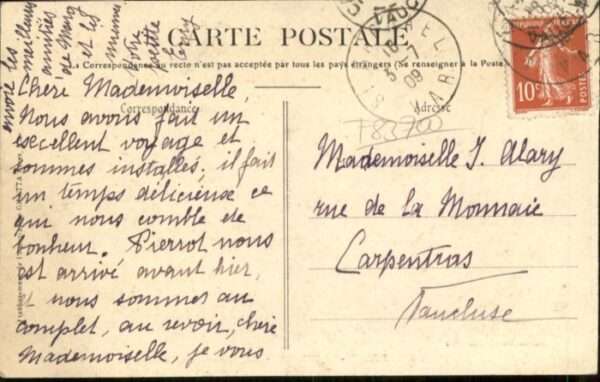 CARTE POSTALE
La Correspondance au recto n'est pas acceptée par tous les pays étrangers (Se renseigner à la Poste).
Correspondance
Adresse
Chère Mademoiselle,
Nous avons fait un
excellent voyage et
sommes installés, il fait
un temps délicieuse ce
qui nous comble de
bonheur. Pierrot nous
est arrivé avant hier,
et nous sommes au
complet, au revoir, chère
Mademoiselle, je vous
envoie les
meilleures
amitiés
de
et les
votre
petite
F83700
Mademoiselle J. Alary
rue de la Monnaie
Carpentras
Vaucluse
10c
POSTES
3 -7
09
VAR